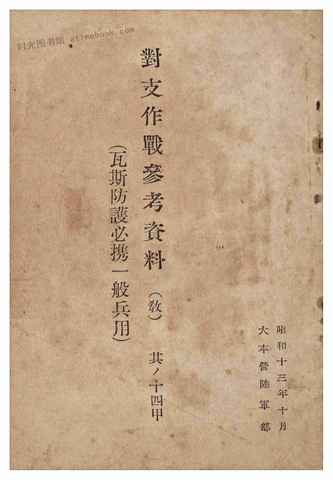 昭和十三年十月
大本營陸軍部
對支作戰參考資料（教）其ノ十四甲
（瓦斯防護必携一般兵用）
时光图书馆 atimebook.com